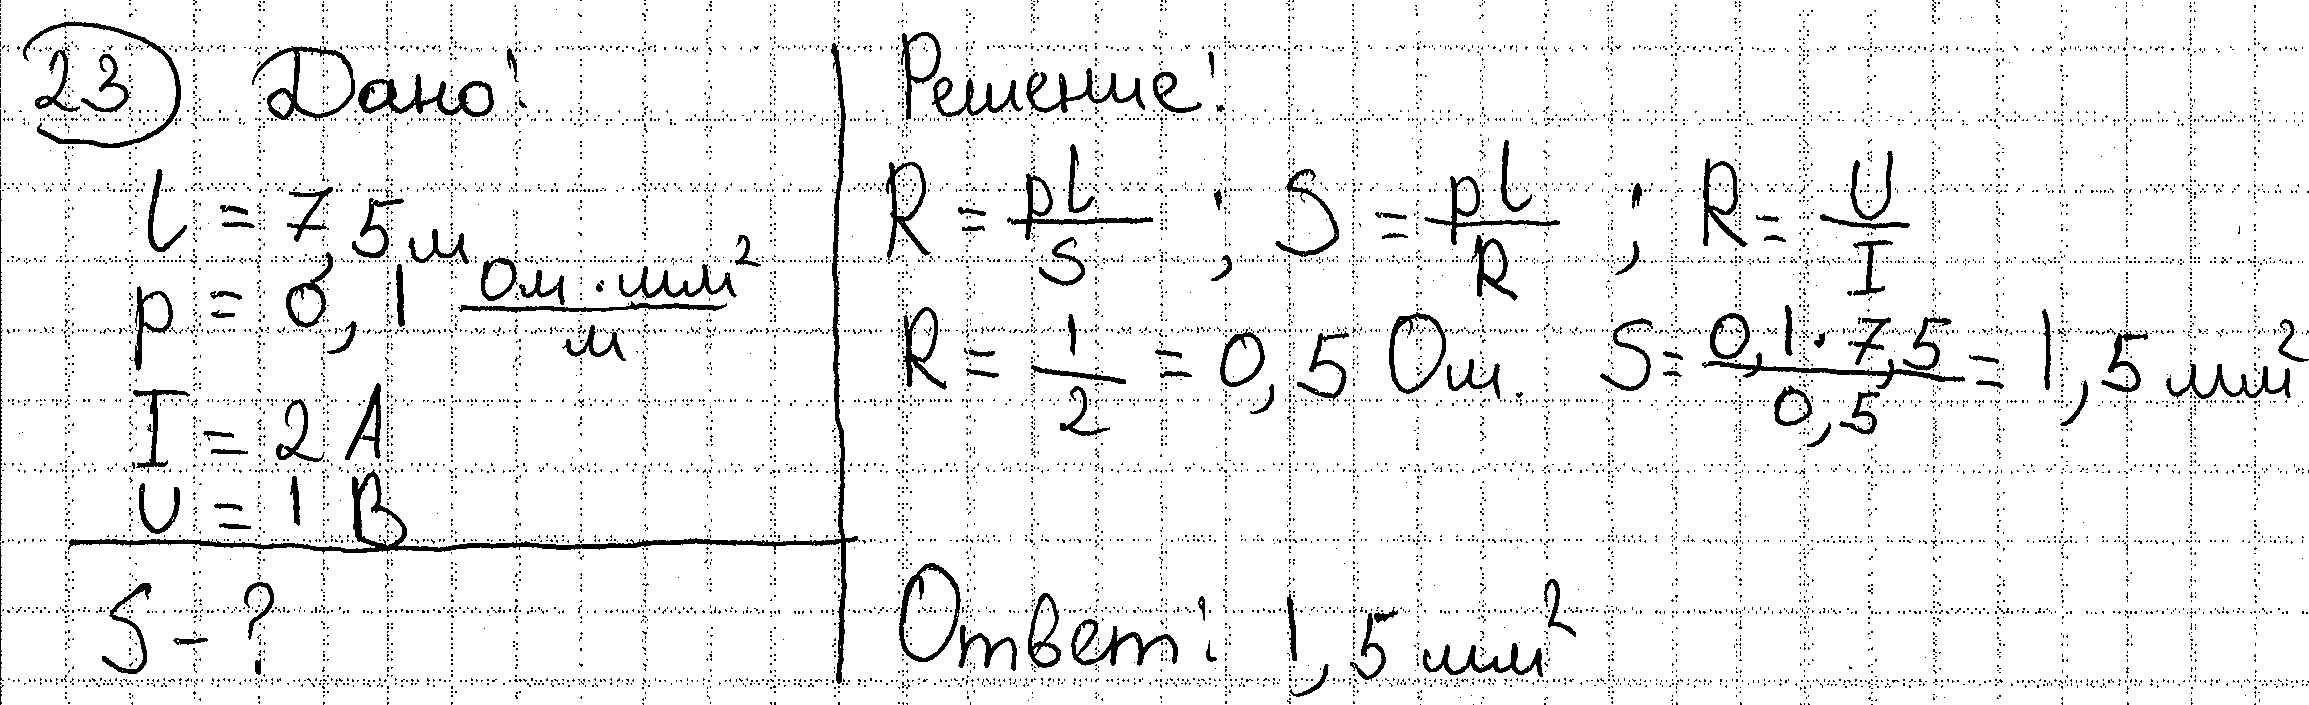 23 Дано:
l = 7,5 м
ρ = 0,1 Ом·мм²/м
I = 2 А
U = 1 В
S - ?
Решение:
R = ρl/S ; S = ρl/R ; R = U/I
R = 1/2 = 0,5 Ом. S = 0,1·7,5/0,5 = 1,5 мм²
Ответ: 1,5 мм²